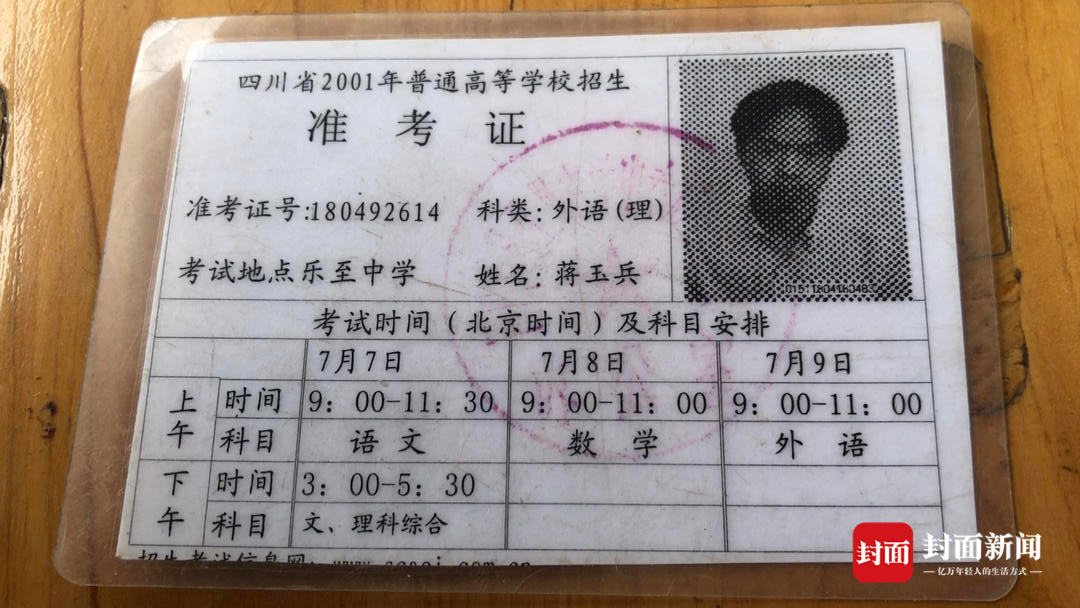 四川省2001年普通高等学校招生
准 考 证
准考证号:180492614 科类:外语(理)
考试地点乐至中学 姓名:蒋玉兵
考试时间(北京时间)及科目安排
7月7日 7月8日 7月9日
上午 时间 9:00-11:30 9:00-11:00 9:00-11:00
科目 语文 数学 外语
下午 时间 3:00-5:30
科目 文、理科综合
招生考试信息网:
封面 封面新闻
亿万年轻人的生活方式